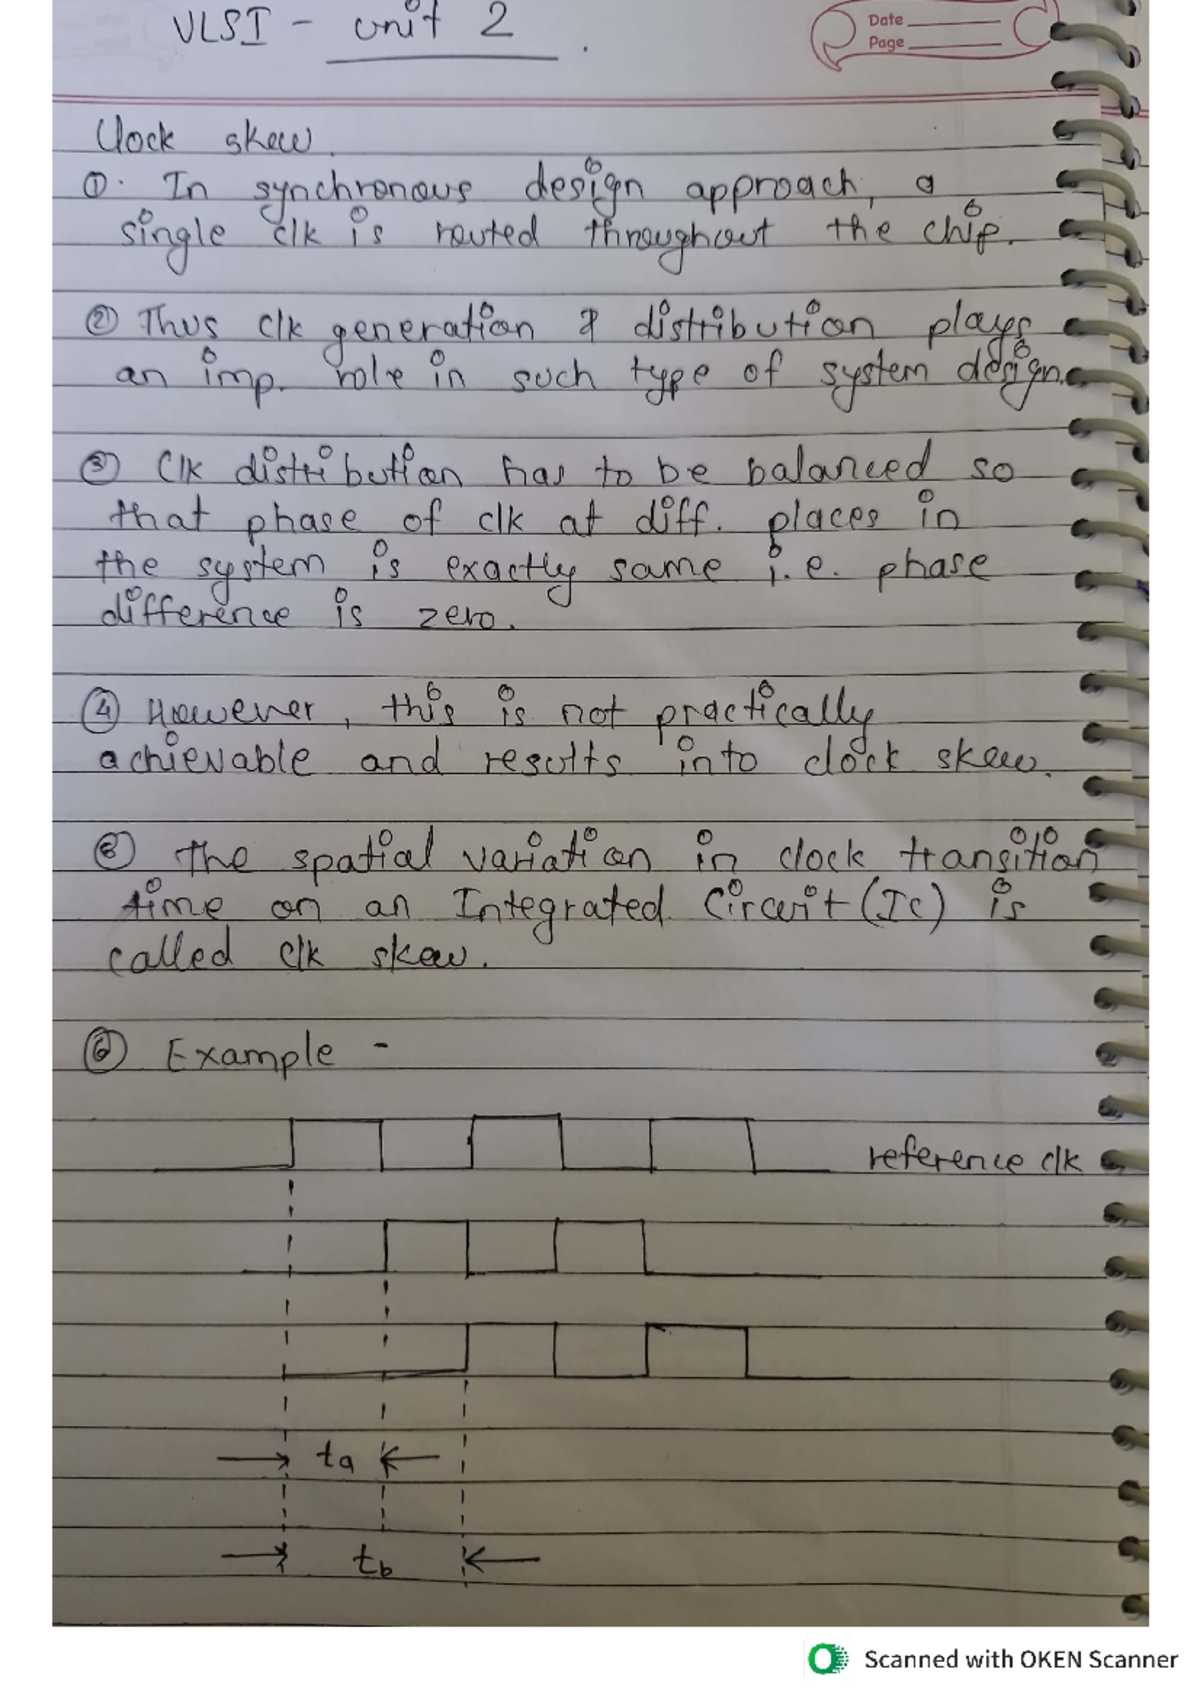 VLSI - unit 2.
Date
Page
Clock skew.
①. In synchronous design approach, a
single clk is routed throughout the chip.
② Thus clk generation & distribution plays
an imp. role in such type of system design.
③ Clk distribution has to be balanced so
that phase of clk at diff. places in
the system is exactly same i.e. phase
difference is zero.
④ However, this is not practically
achievable and results into clock skew.
⑤ The spatial variation in clock transition
time on an Integrated Circuit (Ic) is
called clk skew.
⑥ Example -
reference clk
ta
tb
Scanned with OKEN Scanner